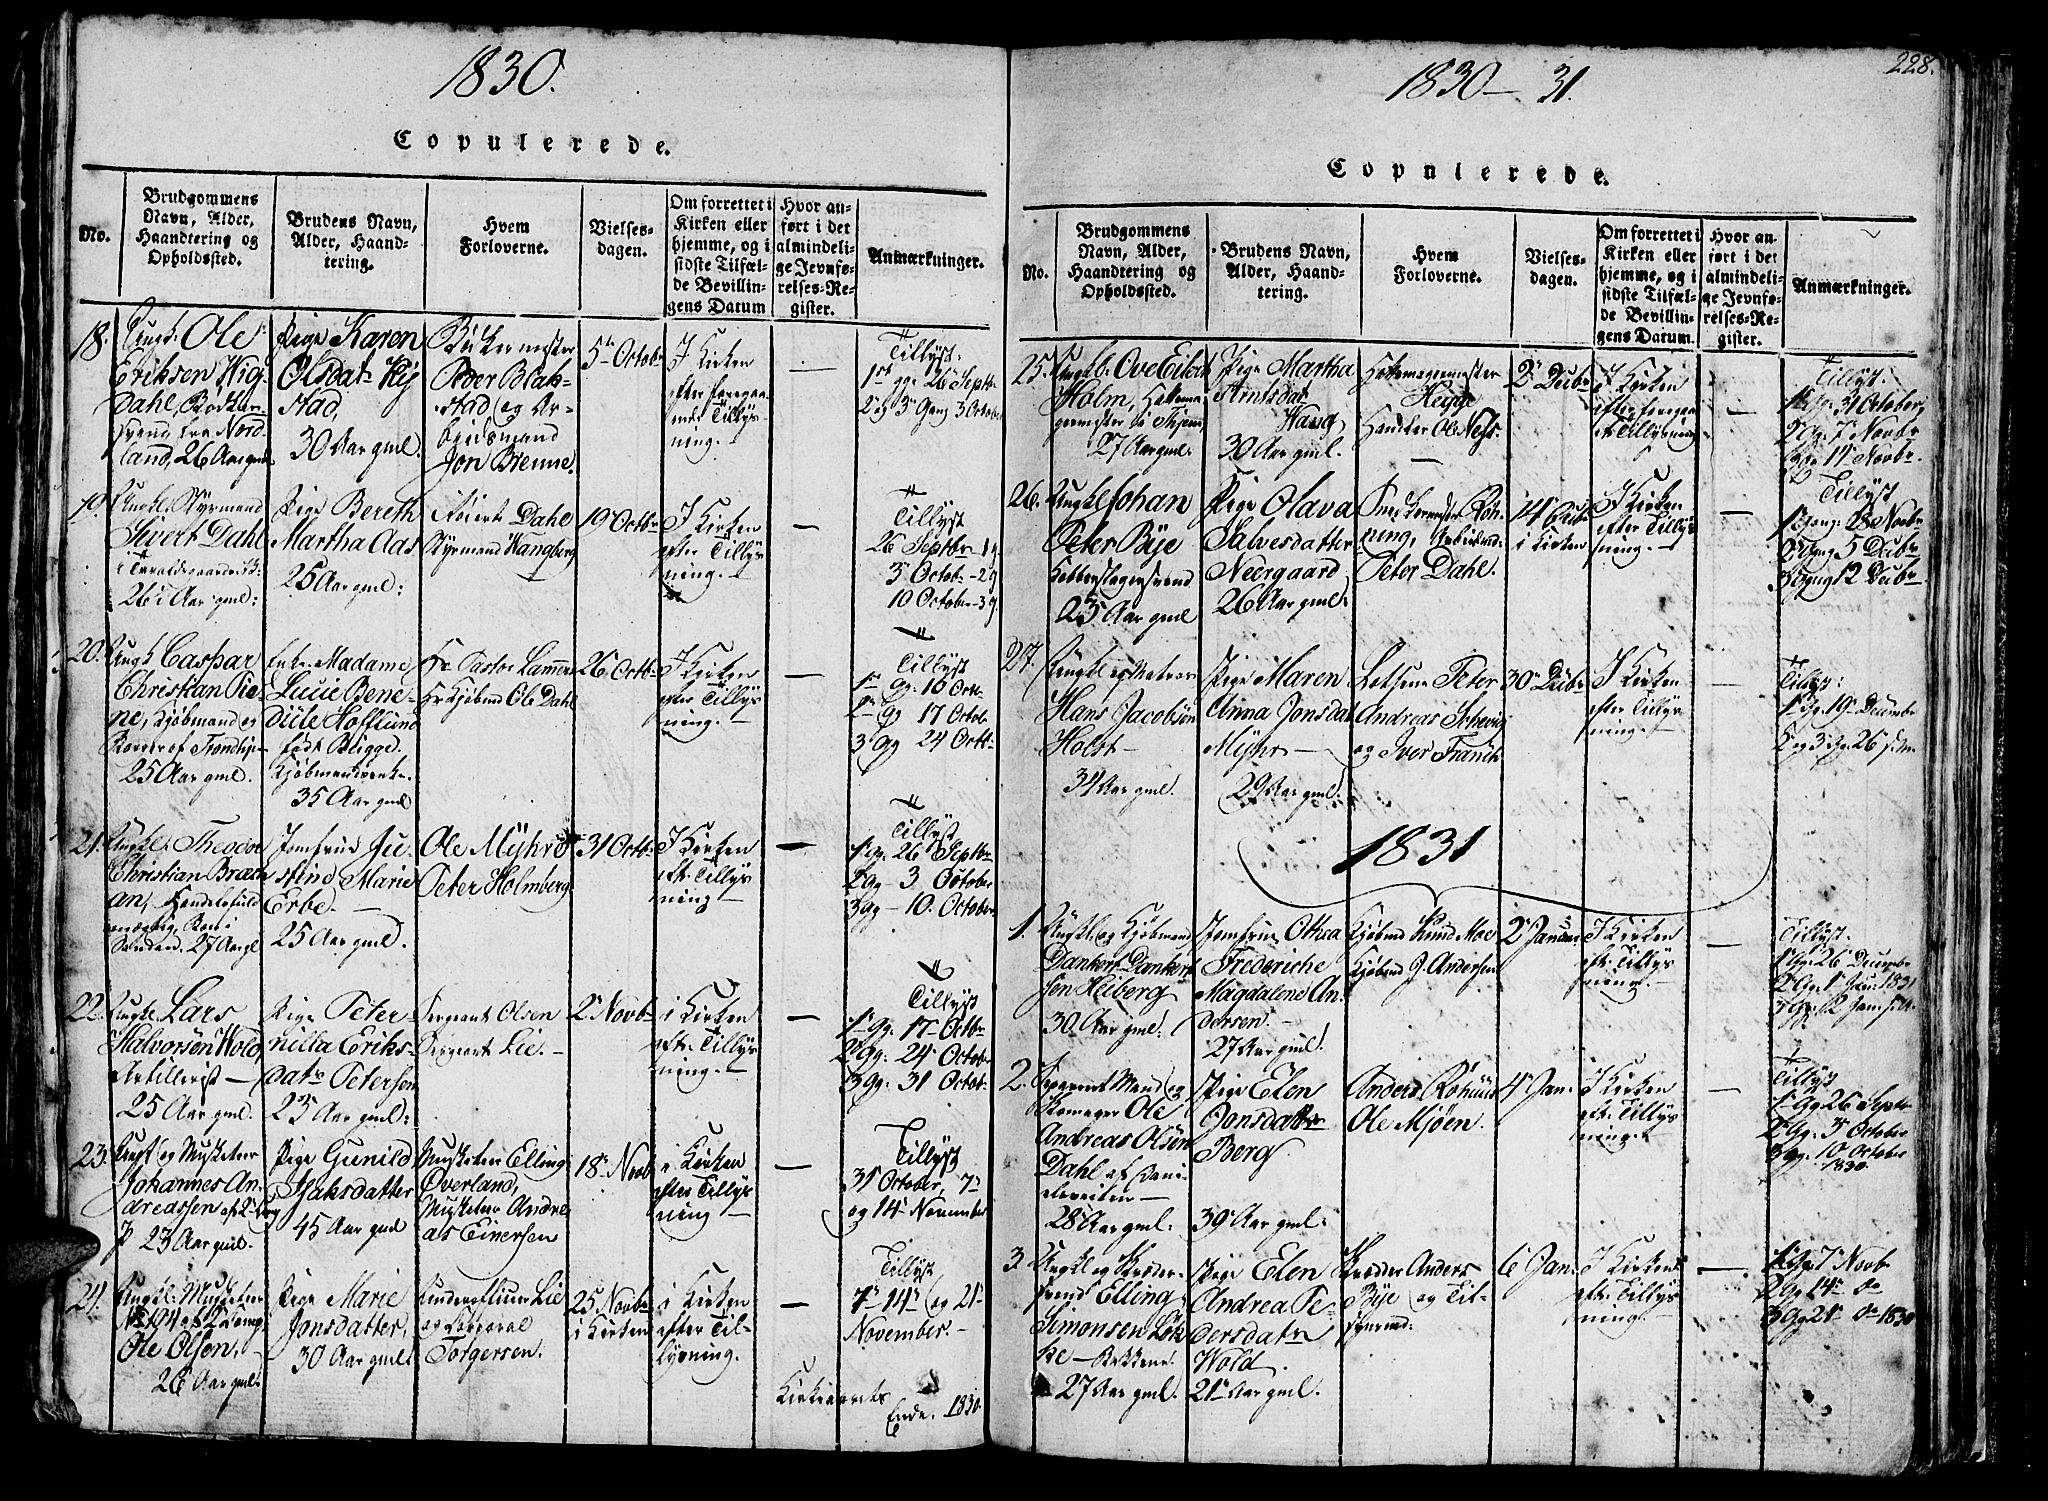 1830.
Copulerede.
No.
Brudgommens
Navn, Alder,
Haandtering og
Opholdssted.
Brudens Navn,
Alder, Haand-
tering.
Hvem
Forloverne.
Vielses-
dagen.
Om forrettet i
Kirken eller
hjemme, og i
sidste Tilfæl-
de Bevillin-
gens Datum
Hvor an-
ført i det
almindeli-
ge Jevnfø-
relses-Re-
gister.
Anmærkninger.
18.
Ungk. Ole
Eriksen Wig
Dahl, Bødker-
svend fra Nord-
land, 26 Aar gml.
Pige Karen
Olsdatr
stad,
30 Aar gml.
Peder Blak-
stad og Ar-
beidsmand
Jon Brenne.
5te Octobr
I Kirken
efter foregaa-
ende Tillys-
ning.
—
Tillyst:
1ste gg. 26 Septbr
2 og 3 Gang 3 October
19.
Ungk. Styrmand
Sivert Dahl
26 Aar gml:
Pige Bereth
Martha Aas
25 Aar gml:
Dahl
Styrmand Wangberg
19 Octbr
I Kirken
efter Tillys-
ning.
—
Tillyst
26 Septbr 1 g
3 Octob - 2 g
10 October - 3 g.
20.
Ungk Caspar
Christian Pie-
ne, Kjøbmand og
Borger af Trondhj-
25 Aar gml.
Enke Madame
Lucie Bene-
dicte Hoftlund
født Brigge.
Kjøbmandsenke.
35 Aar gml
Hr Pastor Lammers
Hr Kjøbmd Ole Dahl
26 Octbr
I Kirken
efter Tillys-
ning.
—
Tillyst
1ste gg. 10 Octbr
2 gg 17 Octob
3 gg 24 Octbr
21.
Ungk. Theodor
Christian Bræch
an,
27 Aar gl
Jomfrue Ju-
stine Marie
Erbe.
25 Aar gml.
Ole Myhre
Peter Holmberg
31 Octbr
I Kirken
eft. Tillys-
ning
—
Tillyst
1 gg. 26 Septbr
2 gg - 3 October
3 gg - 10. October
22.
Ungk. Lars
Halvorsen Wold
Artillerist —
25 Aar gml.
Pige Peter-
nilla Eriks-
datr Petersen
23 Aar gml:
Sergeant Olsen
Sergeant Lie.
2 Novbr
i Kirken
eft. Tillys-
ning.
—
Tillyst
1 gg. 17 Octbr
2 gg. 24 Octob
3 gg. 31 Octob.
23.
Ungk og Musketeer
Johannes An-
dreassen
23 Aar gml.
Pige Gunild
Isaksdatter
45 Aar gml
Musketeer Elling
Øverland,
Musketeer Andre-
as Einersen
18 Novb
i Kirken
efter Tillys-
ning
—
Tillyst
31 October, 7
og 14 November
24.
Ungk. Musketeer
No 104 af 2 Comp.
Ole Olsen.
26 Aar gml.
Pige Marie
Jonsdatter,
30 Aar gml.
Lie
og Corporal
Torgersen.
25 Novbr
i Kirken
i Kirken
efter Til-
lysning.
—
Tillyst
7, 14 og 21
November.
Kirkeaarets
Ende. 1830.
228.
1830 - 31.
Copulerede.
No.
Brudgommens
Navn, Alder,
Haandtering og
Opholdssted.
Brudens Navn,
Alder, Haand-
tering.
Hvem
Forloverne.
Vielses-
dagen.
Om forrettet i
Kirken eller
hjemme, og i
sidste Tilfæl-
de Bevillin-
gens Datum.
Hvor an-
ført i det
almindeli-
ge Jevnfø-
relses-Re-
gister.
Anmærkninger.
25.
Ungk. Ove
Holm,
27 Aar gml.
Pige Martha
Arntsdatr
Haug
30 Aar gml.
Hegge
Handler Ole Ness.
2 Decbr
I Kirken
efter foregaa-
Tillysning
—
Tillyst.
1 gg. 31 October,
2 g. 7 Novbr
3 g. 14 Novbr.
26.
Ungk Johan
Peter Bye
Kobberslagersvend
23 Aar gml
Pige Olava
Salvesdatter
Neergaard
26 Aar gml.
Røn-
ning,
Peter Dahl.
14 Decbr
i Kirken
I Kirken
efter Tillys-
ning.
—
Tillyst
1 gang. 28 Novbr
2 gang 5 Decbr
3 gang 12 Decbr
27.
Ungk. og Matros
Hans Jacobsen
Holst —
34 Aar gml.
Pige Maren
Anna Jonsdatr
Myhr —
29 Aar gml.
Peter
Andreas Schevig
og Iver
30 Decbr
I Kirken
efter Tillys-
ning.
—
Tillyst:
1 Gg. 19 Decembr
2 og 3 Gg. 26
1831
1.
Ungk. og Kjøbmand
Dankert Dankert-
sen Heiberg
30 Aar gml.
Jomfrue Othea
Frederiche
Magdalene An-
dersen.
27 Aar gml.
Kjøbmd Knud Moe
Kjøbmd J. Andersen
2 Januar
I Kirken
eft. Tillys-
ning.
—
Tillyst.
1 Gg. 26 Decembr
2 Gg. 1 Jan. 1831
3 Gg. 2 Jan.
2.
Separeert Mand og
Skomager Ole
Andreas Olsen
Dahl af
28 Aar gml.
Pige Elen
Jonsdatter
Berg
39 Aar gml:
Anders
Ole Mjøen.
4 Jan.
I Kirken
eft. Tillys-
ning.
—
Tillyst
1 Gg 26 Septbr
2 Gg. 3 October
3 gg. 10 October
1830.
3
Ungkl og Skræder-
svend Elling
Simonsen
27 Aar gml.
Pige Elen
Andrea Pe-
dersdatr
Wold.
21 Aar gml.
Skræder Anders
Bye og
6 Jan.
I Kirken
eft. Tillys-
ning.
—
1 Gg. 7 Novb
2 Gg 14 do
3 Gg 21 do 1830